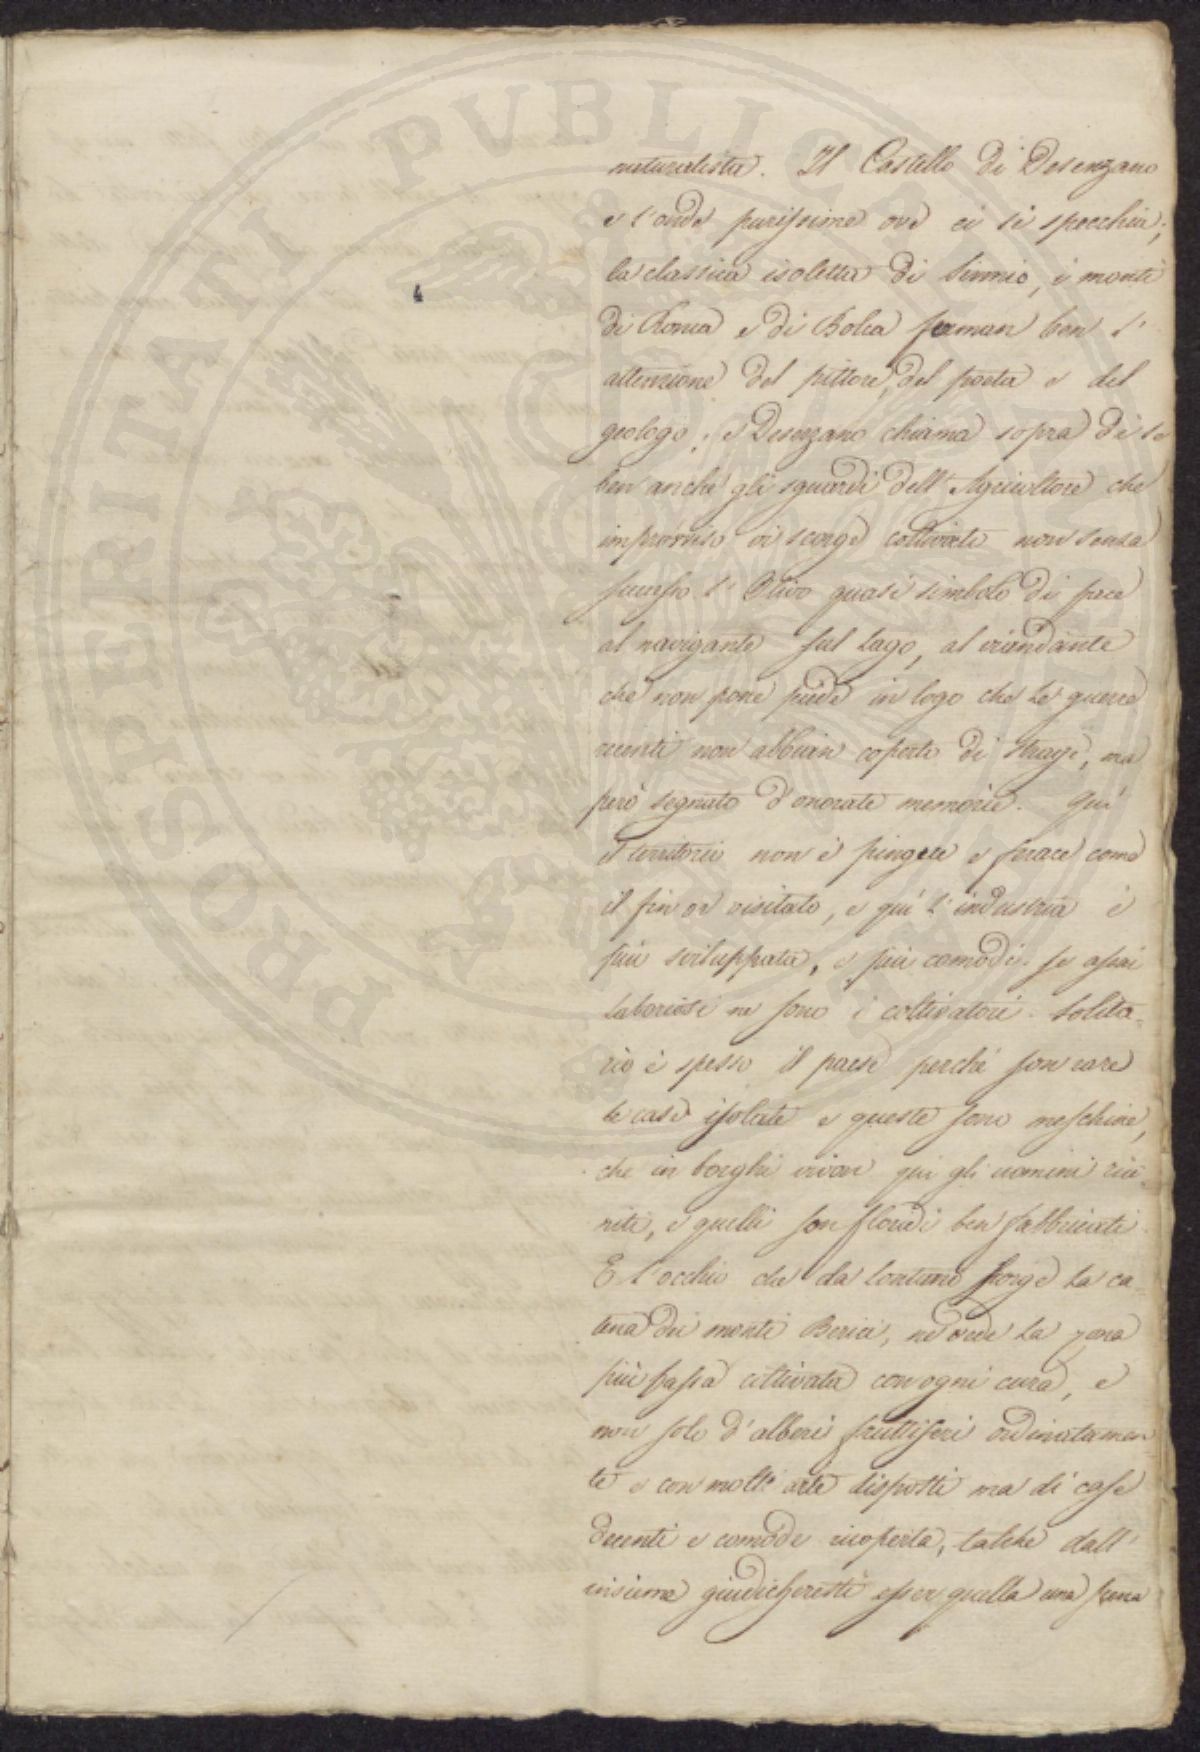 PROSPERITATI PUBLICAE
naturalista. Il Castello di Desenzano
e l'onde purissime ove ei si specchia;
la classica isoletta di Sirmio, i monti
di Ronca e di Bolca ferman ben l'
attenzione del pittore, del poeta e del
geologo; e Desenzano chiama sopra di se
ben anche gli sguardi dell'Agricoltore che
improvviso vi scorge coltivato non senza
successo l'Olivo quasi simbolo di pace
al navigante sul lago, al viandante
che non pone piede in logo che le guerre
recenti non abbian coperto di stragi, ma
però segnato d'onorate memorie. Quì
il territorio non è pingue e ferace come
il fin or visitato, e quì l'industria è
più sviluppata, e più comodi se assai
laboriosi ne sono i coltivatori. Solita-
rio è spesso il paese perché son rare
le case isolate e queste sono meschine,
che in borghi vivon qui gli uomini riu-
niti, e quelli son floridi ben fabbricati
E l'occhio che da lontano scorge la ca-
tena dei monti Berici, ne vede la zona
più bassa coltivata con ogni cura, e
non solo d'alberi fruttiferi ordinatamen
te e con molt'arte disposti ma di case
decenti e comode ricoperta, talchè dall'
insieme giudichereste esser quella una scena